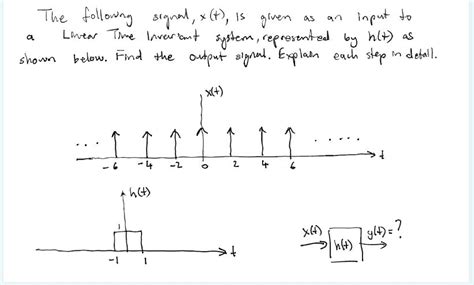 The following signal, x(t), is given as an input to
a Linear Time Invariant system, represented by h(t) as
shown below. Find the output signal. Explain each step in detail.
x(t)
... .....
-6 -4 -2 0 2 4 6 t
h(t)
1
-1 1 t
x(t) h(t) y(t)=?